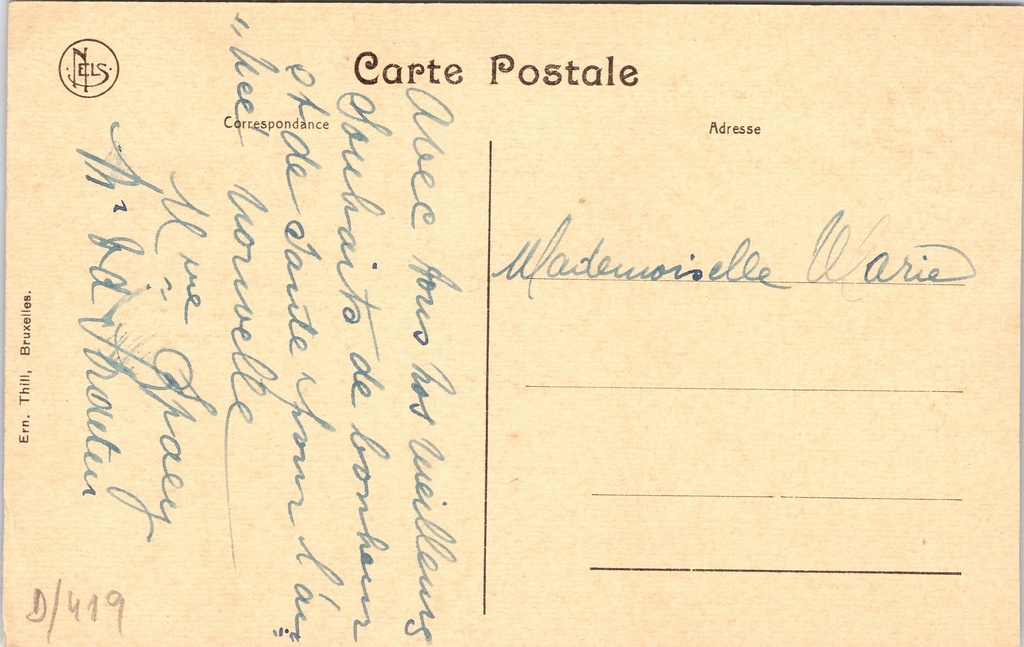 NELS
Carte Postale
Correspondance
Adresse
Avec tous nos meilleurs
Souhaits de bonheur
et de Santé pour l'an
„ née nouvelle
Mme
Mr
Mademoiselle Marie
Ern. Thill, Bruxelles.
D/419